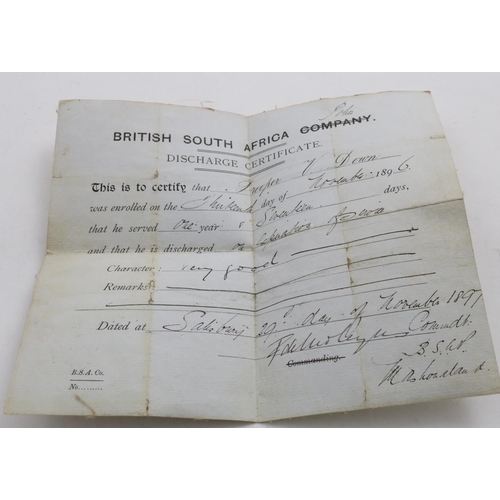 Police
BRITISH SOUTH AFRICA COMPANY.
DISCHARGE CERTIFICATE.
This is to certify that Trooper V. Down
was enrolled on the Thirteenth day of November 1896
that he served one year & Seventeen days.
and that he is discharged on
Character: very good
Remarks:
Dated at Salisbury 29th day of November 1897
Comndt.
Commanding.
B.S.A.P.
Mashonaland.
B.S.A. Co.
No.........